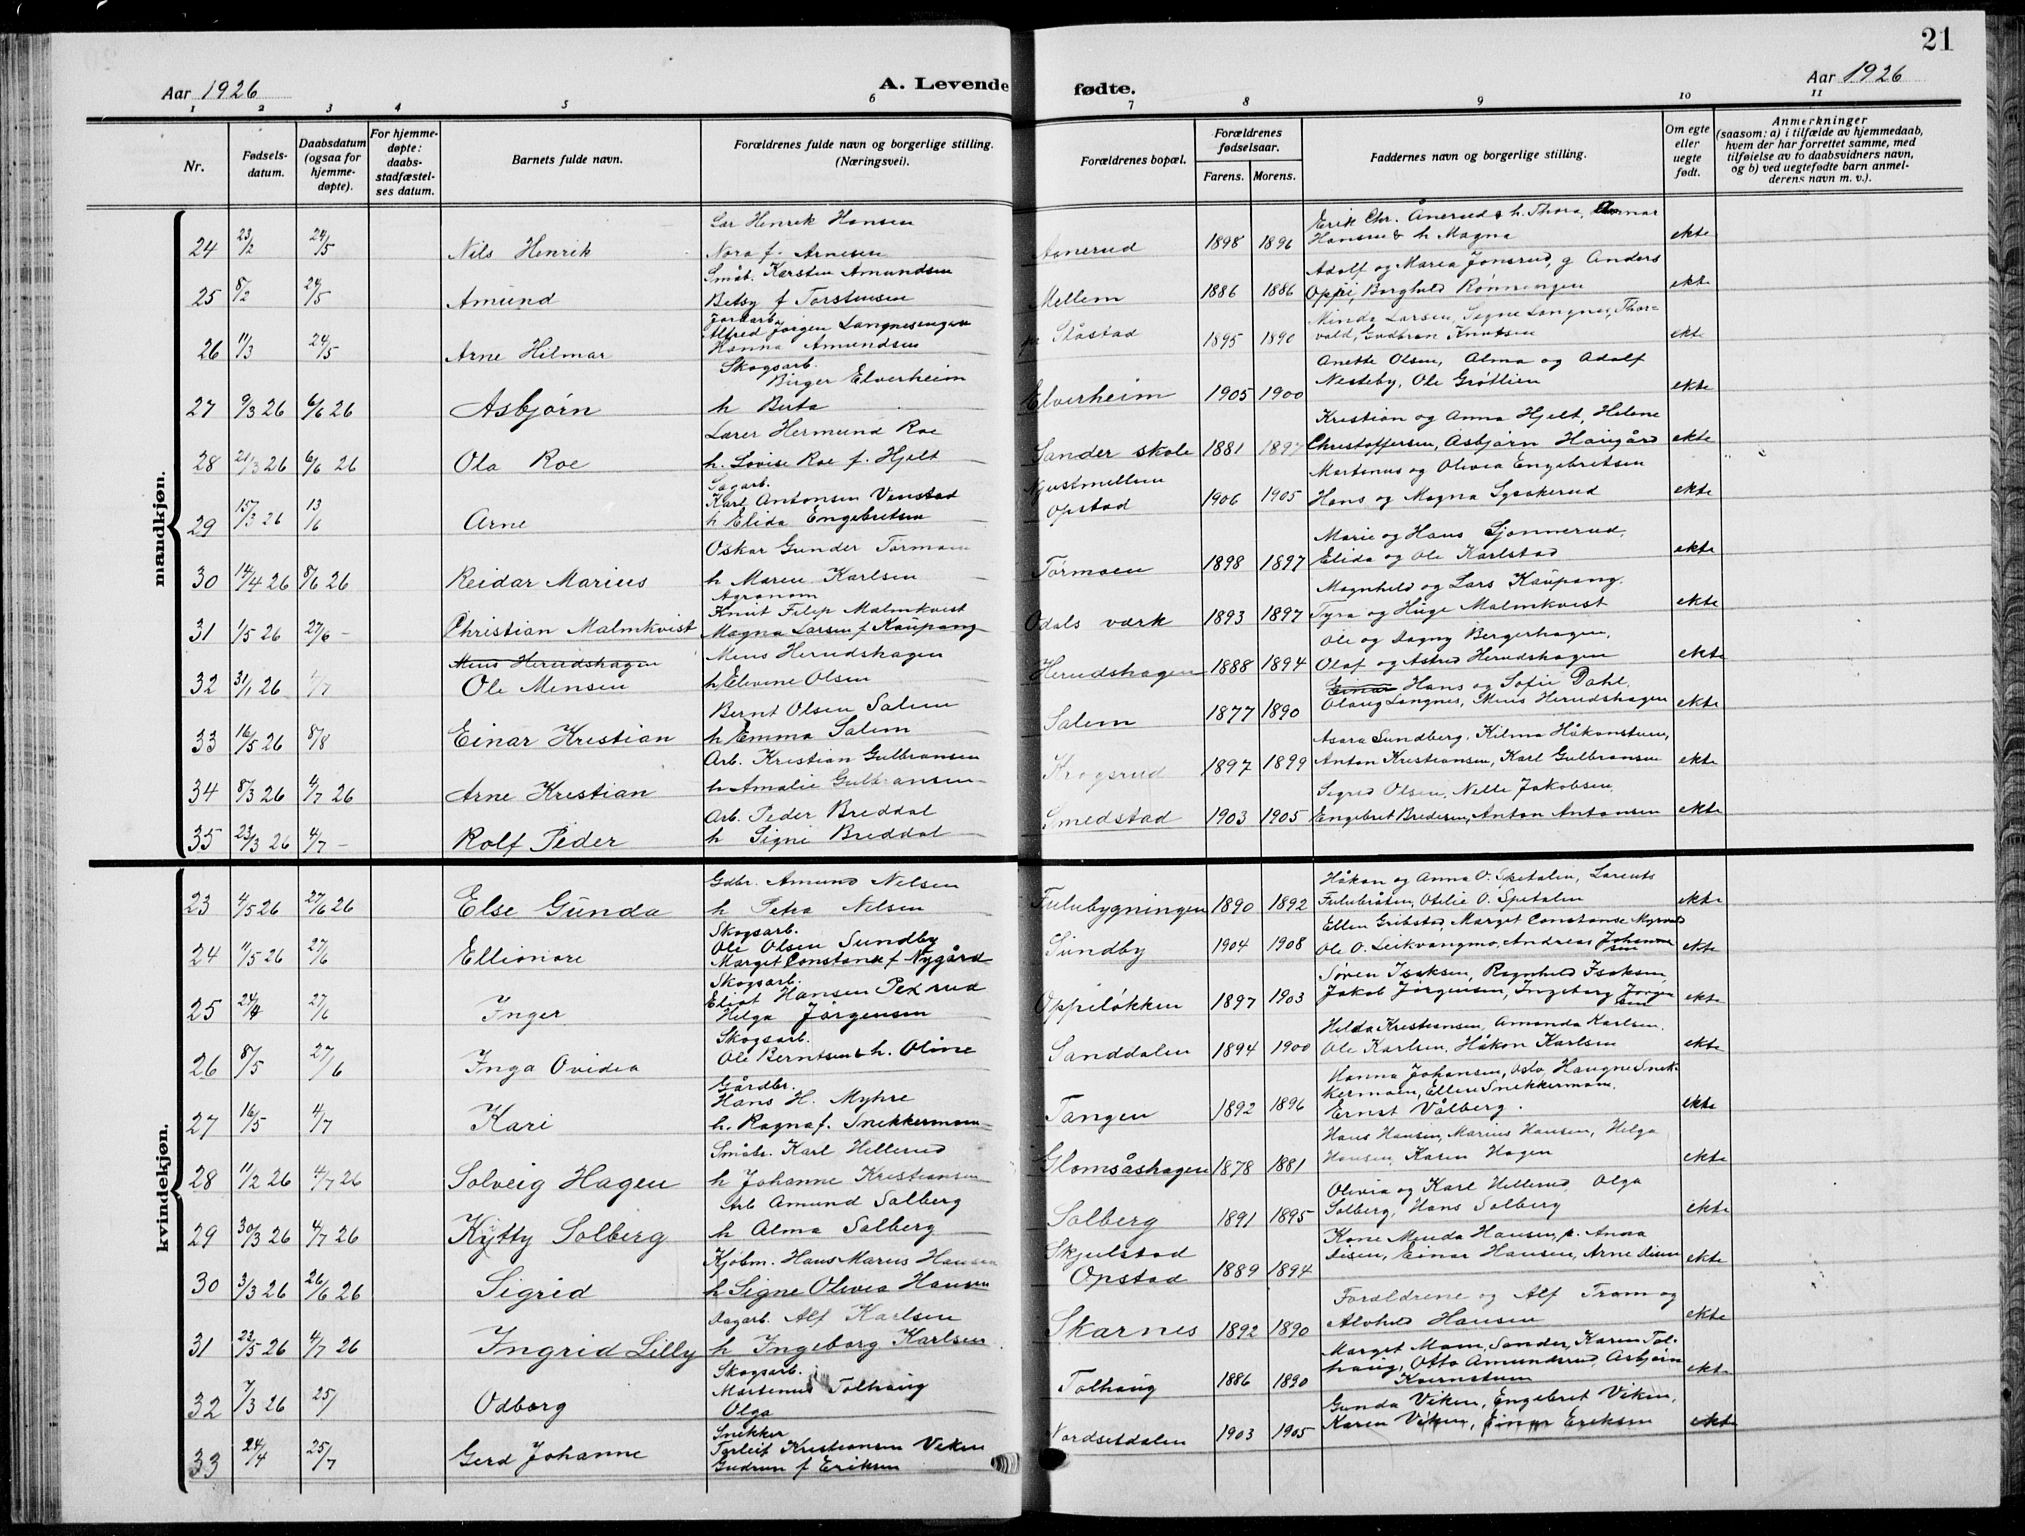 21
Aar 1926
A. Levende fødte.
Aar 1926
1 2 3 4 5 6 7 8 9 10 11
Nr.
Fødsels-datum.
Daabsdatum (ogsaa for hjemme-døpte).
For hjemme-døpte: daabs-stadfæstel-ses datum.
Barnets fulde navn.
Forældrenes fulde navn og borgerlige stilling. (Næringsvei).
Forældrenes bopæl.
Forældrenes fødselsaar.
Farens. Morens.
Faddernes navn og borgerlige stilling.
Om egte eller uegte født.
Anmerkninger (saasom: a) i tilfælde av hjemmedaab, hvem der har forrettet samme, med tilføielse av to daabsvidners navn, og b) ved uegtefødte barn anmel-derens navn m. v.).
mandkjøn.
24 23/2 24/5 Nils Henrik
Henrik Hansen
Nora f. Arnesen
1898 1896
Erik Chr. Ånerud & h. Thora,
Hansen & h Magna
ekte
25 8/2 24/5 Amund
Småb. Karsten Amundsen
Betsy f Torstensen
Mellem 1886 1886
Adolf og Marea Jonsrud, g Anders
Oppi, Borghild Rønningen
ekte
26 11/3 24/5 Arne Hilmar
Jordarb.
Alfred Jørgen Langnesengen
Hanna Amundsen
Ståstad 1895 1890
Minda Larsen, Signe Langnes, Thor-
vald, Gudbran Knutsen
ekte
27 9/3 26 6/6 26 Asbjørn
Skogsarb.
Birger Elverheim
h Berta
Elverheim 1905 1900
Anette Olsen, Alma og Adolf
Nesteby, Ole Grøtlien
ekte
28 21/3 26 6/6 26 Ola Roe
Lærer Hermund Roe
h. Lovise Roe f. Hjelt
Sander skole 1881 1897
Kristian og Anna Hjelt, Helene
Christoffersen, Asbjørn Haugård
ekte
29 15/3 26 13/6 Arne
Sagarb.
Karl Antonsen
h Elida Engebretsen
Opstad 1906 1905
Martenus og Olivia Engebretsen
Hans og Magna Sysskerud
ekte
30 14/4 26 8/6 26 Reidar Marius
Oskar Gunder Tormoen
h Maren Karlsen
Tormoen 1898 1897
Marie og Hans Sjonnerud,
Elida og Ole Karlstad
ekte
31 1/5 26 27/6 - Christian Malmkvist
Agronom
Knut Filip Malmkvist
Magna Larsen f Kaupang
Odals værk 1893 1897
Magnhild og Lars Kaupang.
Tyra og Huge Malmkvist
ekte
32 31/1 26 4/7
Mens Herudshagen
Ole Mensen
Mens Herudshagen
h Elevine Olsen
Herudshagen 1888 1894
Ole og Dagny Bergerhagen,
Olaf og Astrid Herudshagen
ekte
33 16/5 26 8/8 Einar Kristian
Bernt Olsen Salem
h Emma Salem
Salem 1877 1890
Einar Hans og Sofie Dahl,
Olaug Langnes, Mens Herudshagen
ekte
34 8/3 26 4/7 26 Arne Kristian
Arb. Kristian Gulbransen
h Amalie Gulbransen
Krogsrud 1897 1899
Asora Sundberg. Hilma Håkonstuen,
Anton Kristiansen, Karl Gulbransen
ekte
35 23/3 26 4/7 - Rolf Peder
Arb. Peder Breddal
h Signi Breddal
Smedstad 1903 1905
Sigrid Olsen, Nelle Jakobsen,
Engebret Bredesen, Anton Antonsen
ekte
kvindekjøn.
23 4/5 26 27/6 26 Else Gunda
Gdbr. Amund Nelsen
h Petra Nelsen
Fulubygningen 1890 1892
Håkon og Anna O. Spetalen, Lorents
Fulubråten, Otelie O. Spetalen
ekte
24 11/5 26 27/6 Ellionore
Skogsarb.
Ole Olsen Sundby
Marget Constanse f Nygård
Sundby 1904 1908
Ellen Gribstad, Marget Constanse
Ole O. Leikvangmo, Andreas Johannesen
ekte
25 24/4 27/6 Inger
Skogsarb.
Eliot Hansen Pexrud
Helga Jørgensen
Oppiløkken 1897 1903
Søren Isaksen, Ragnhild Isaksen,
Jakob Jørgensen, Ingeborg Jørgensen
ekte
26 8/5 27/6 Inga Ovidea
Skogsarb.
Ole Berntsen & h. Oline
Sanddalen 1894 1900
Hilda Kristiansen, Amanda Karlsen.
Ole Karlsen, Håkon Karlsen
ekte
27 16/5 4/7 Kari
Gårdbr.
Hans H. Myhre
h. Ragna f. Snekkermoen
Tangen 1892 1896
Hanna Johansen, Oslo, Haugne Snek-
kermoen, Ellen Snekkermoen.
Ernst Vålberg.
ekte
28 11/2 26 4/7 26 Solveig Hagen
Småbr. Karl Hellerud
h Johanne Kristiansen
Glomsåshagen 1878 1881
Hans Hansen, Marius Hansen, Helga
Hansen, Karen Hagen
ekte
29 30/3 26 4/7 26 Kytty Solberg
Arb Amund Solberg
h Alma Solberg
Solberg 1891 1895
Olivia og Karl Hellerud, Olga
Solberg, Hans Solberg
ekte
30 3/3 26 26/6 26 Sigrid
Kjøbm. Hans Marius Hansen
h Signe Olivia Hansen
Skjulstad
Opstad 1889 1894
Kone Menda Hansen, p. Anna
Disen, Einar Hansen, Arne Disen
ekte
31 23/5 26 4/7 26 Ingrid Lilly
Dagarb. Alf Karlsen
h Ingeborg Karlsen
Skarnes 1892 1890
Forældrene og Alf Tram og
Alvhild Hansen
ekte
32 7/3 26 25/ Odborg
Skogsarb.
Martenus Tolhaug
Olga
Tolhaug 1886 1890
Marget Moen, Sander, Karen Tol-
haug, Otto Amundsrud, Asbjørn
Kvernstuen
ekte
33 24/4 25/7 Gerd Johanne
Snikker
Torleif Kristiansen Viken
Gudrun f Eriksen
Nordsetdalen 1903 1905
Gunda Viken, Engebret Viken,
Karen Viken, Einar Eriksen
ekte